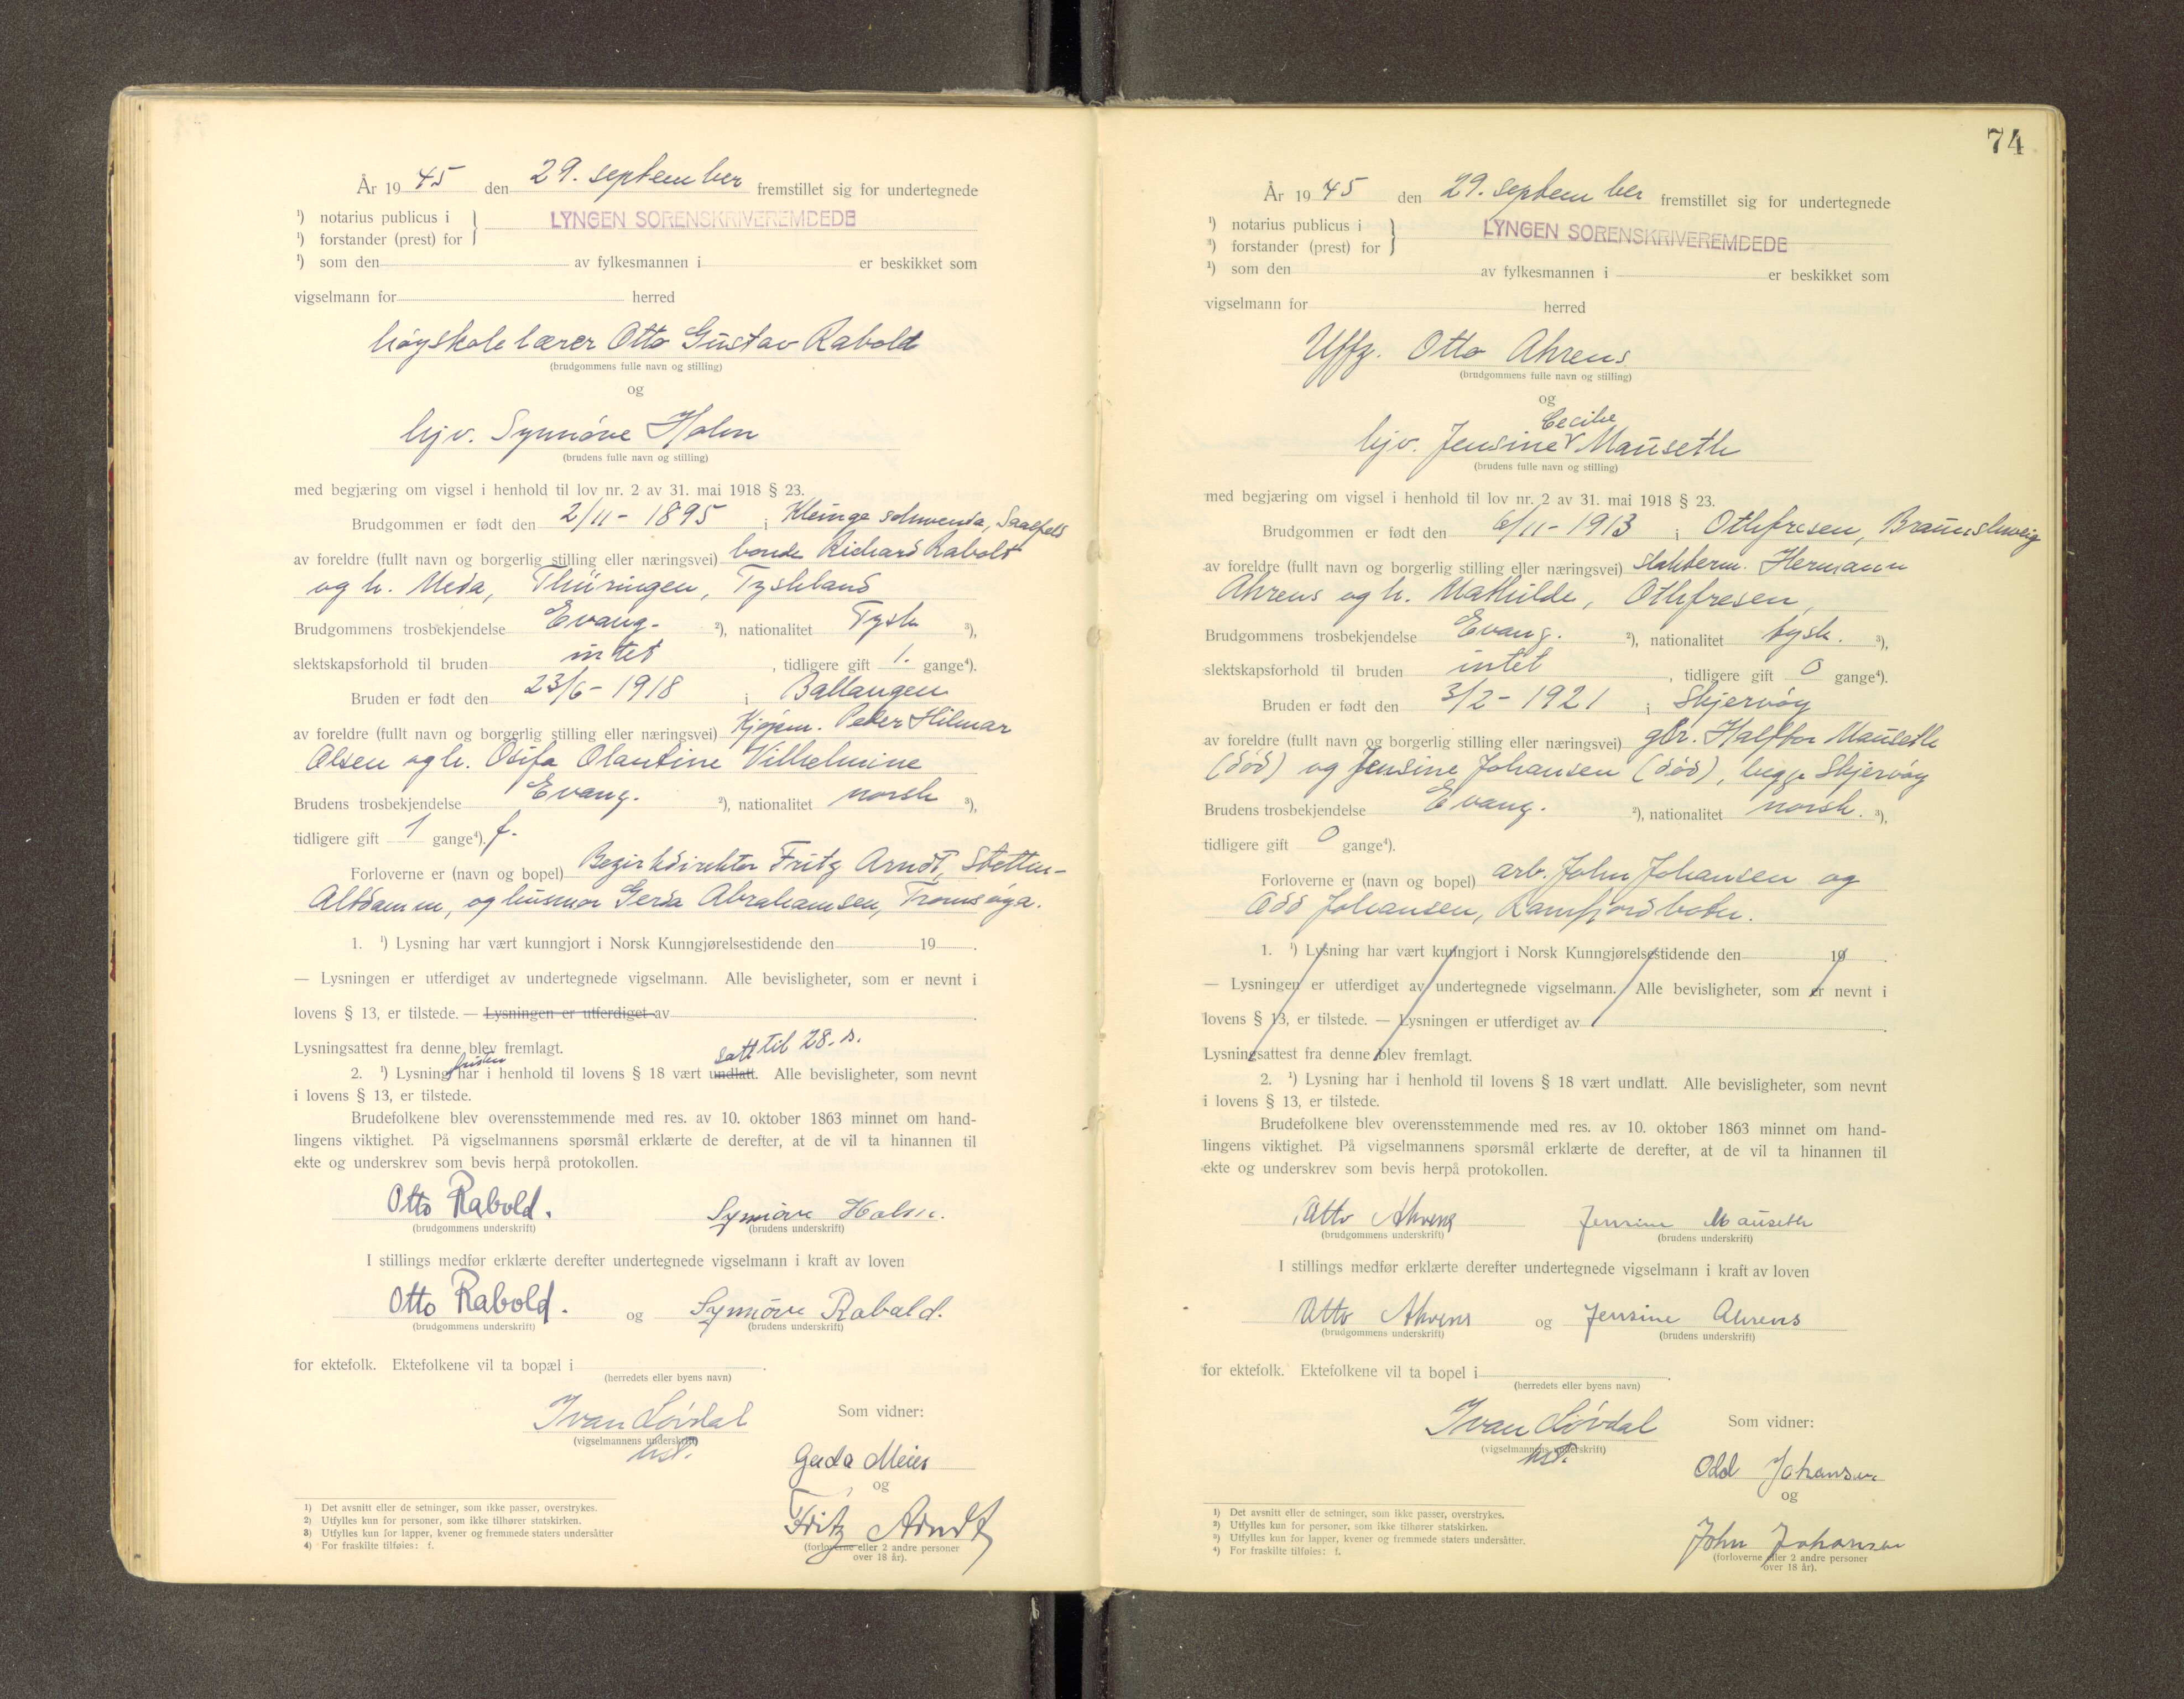 År 1945 den 29. september fremstillet sig for undertegnede
¹) notarius publicus i } LYNGEN SORENSKRIVEREMDEDE
¹) forstander (prest) for
¹) som den av fylkesmannen i er beskikket som
vigselmann for herred
høyskolelærer Otto Gustav Rabold
(brudgommens fulle navn og stilling)
og
hjv. Synnöve Holm
(brudens fulle navn og stilling)
med begjæring om vigsel i henhold til lov nr. 2 av 31. mai 1918 § 23.
Brudgommen er født den 2/11 - 1895 i Kleinge schwenda, Saalfeld
av foreldre (fullt navn og borgerlig stilling eller næringsvei) bonde Richard Rabold
og h. Meda, Thüringen, Tyskland
Brudgommens trosbekjendelse Evang. ²), nationalitet Tysk ³),
slektskapsforhold til bruden intet, tidligere gift 1. gange⁴).
Bruden er født den 23/6 - 1918 i Ballangen
av foreldre (fullt navn og borgerlig stilling eller næringsvei) Peter Hilmar
Olsen og h. Osifa Olantine Vilhelmine
Brudens trosbekjendelse Evang. ²), nationalitet norsk ³),
tidligere gift 1 gange⁴). f.
Forloverne er (navn og bopel) Bezirksdirektor Fritz Arndt, Stettin-
Altdamm, og husmor Gerda Abrahamsen, Tromsöya.
1. ¹) Lysning har vært kunngjort i Norsk Kunngjørelsestidende den 19 .
— Lysningen er utferdiget av undertegnede vigselmann. Alle bevisligheter, som er nevnt i
lovens § 13, er tilstede. — Lysningen er utferdiget av .
Lysningsattest fra denne blev fremlagt.
fristen satt til 28. d.
2. ¹) Lysning har i henhold til lovens § 18 vært undlatt. Alle bevisligheter, som nevnt
i lovens § 13, er tilstede.
Brudefolkene blev overensstemmende med res. av 10. oktober 1863 minnet om hand-
lingens viktighet. På vigselmannens spørsmål erklærte de derefter, at de vil ta hinannen til
ekte og underskrev som bevis herpå protokollen.
Otto Rabold. Synnöve Holm.
(brudgommens underskrift) (brudens underskrift)
I stillings medfør erklærte derefter undertegnede vigselmann i kraft av loven
Otto Rabold. og Synnöve Rabold.
(brudgommens underskrift) (brudens underskrift)
for ektefolk. Ektefolkene vil ta bopæl i .
(herredets eller byens navn)
Ivan Lövdal Som vidner:
(vigselmannens underskrift)
Gerda Meier
og
Fritz Arndt
(forloverne eller 2 andre personer
over 18 år).
1) Det avsnitt eller de setninger, som ikke passer, overstrykes.
2) Utfylles kun for personer, som ikke tilhører statskirken.
3) Utfylles kun for lapper, kvener og fremmede staters undersåtter
4) For fraskilte tilføies: f.
74
År 1945 den 29. september fremstillet sig for undertegnede
¹) notarius publicus i } LYNGEN SORENSKRIVEREMDEDE
³) forstander (prest) for
¹) som den av fylkesmannen i er beskikket som
vigselmann for herred
Uffz. Otto Ahrens
(brudgommens fulle navn og stilling)
og
Cecilie
hjv. Jensine Mauseth
(brudens fulle navn og stilling)
med begjæring om vigsel i henhold til lov nr. 2 av 31. mai 1918 § 23.
Brudgommen er født den 6/11 - 1913 i Othfresen, Braunshweig
av foreldre (fullt navn og borgerlig stilling eller næringsvei) slakterm. Hermann
Ahrens og h. Mathilde, Othfresen,
Brudgommens trosbekjendelse Evang. ²), nationalitet tysk. ³),
slektskapsforhold til bruden intet, tidligere gift 0 gange⁴).
Bruden er født den 3/2 - 1921 i Skjervöy
av foreldre (fullt navn og borgerlig stilling eller næringsvei) gbr. Mauseth
(död) og Jensine Johansen (död), begge Skjervöy
Brudens trosbekjendelse Evang. ²), nationalitet norsk. ³),
tidligere gift 0 gange⁴).
Forloverne er (navn og bopel) arb. John Johansen og
Odd Johansen, Ramfjordbotn.
1. ¹) Lysning har vært kunngjort i Norsk Kunngjørelsestidende den 19 .
— Lysningen er utferdiget av undertegnede vigselmann. Alle bevisligheter, som er nevnt i
lovens § 13, er tilstede. — Lysningen er utferdiget av .
Lysningsattest fra denne blev fremlagt.
2. ¹) Lysning har i henhold til lovens § 18 vært undlatt. Alle bevisligheter, som nevnt
i lovens § 13, er tilstede.
Brudefolkene blev overensstemmende med res. av 10. oktober 1863 minnet om hand-
lingens viktighet. På vigselmannens spørsmål erklærte de derefter, at de vil ta hinannen til
ekte og underskrev som bevis herpå protokollen.
Otto Ahrens Jensine Mauseth
(brudgommens underskrift) (brudens underskrift)
I stillings medfør erklærte derefter undertegnede vigselmann i kraft av loven
Otto Ahrens og Jensine Ahrens
(brudgommens underskrift) (brudens underskrift)
for ektefolk. Ektefolkene vil ta bopel i .
(herredets eller byens navn)
Ivan Lövdal Som vidner:
(vigselmannens underskrift)
Odd Johansen
og
John Johansen
(forloverne eller 2 andre personer
over 18 år).
1) Det avsnitt eller de setninger, som ikke passer, overstrykes.
2) Utfylles kun for personer, som ikke tilhører statskirken.
3) Utfylles kun for lapper, kvener og fremmede staters undersåtter.
4) For fraskilte tilføies: f.